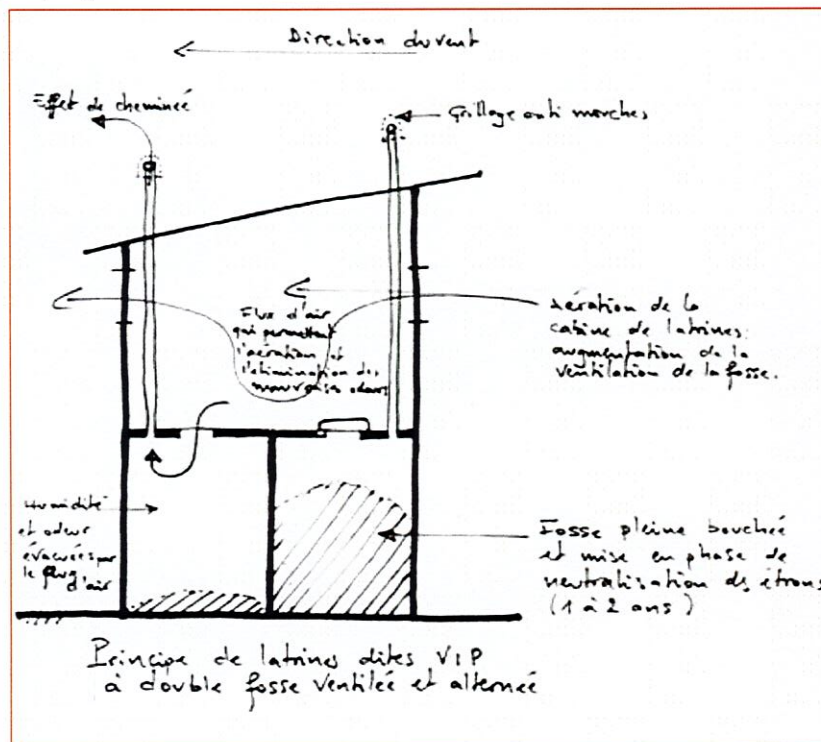 Direction du vent
Effet de cheminée
Grillage anti mouches
Flux d'air
qui permettent
l'aération et
l'élimination des
mauvaises odeurs
Aération de la
cabine de latrines:
augmentation de la
ventilation de la fosse.
Humidité
et odeur
évacuées par
le flux
d'air
Fosse pleine bouchée
et mise en phase de
neutralisation des étrons
(1 à 2 ans)
Principe de latrines dites VIP
à double fosse ventilée et alternée